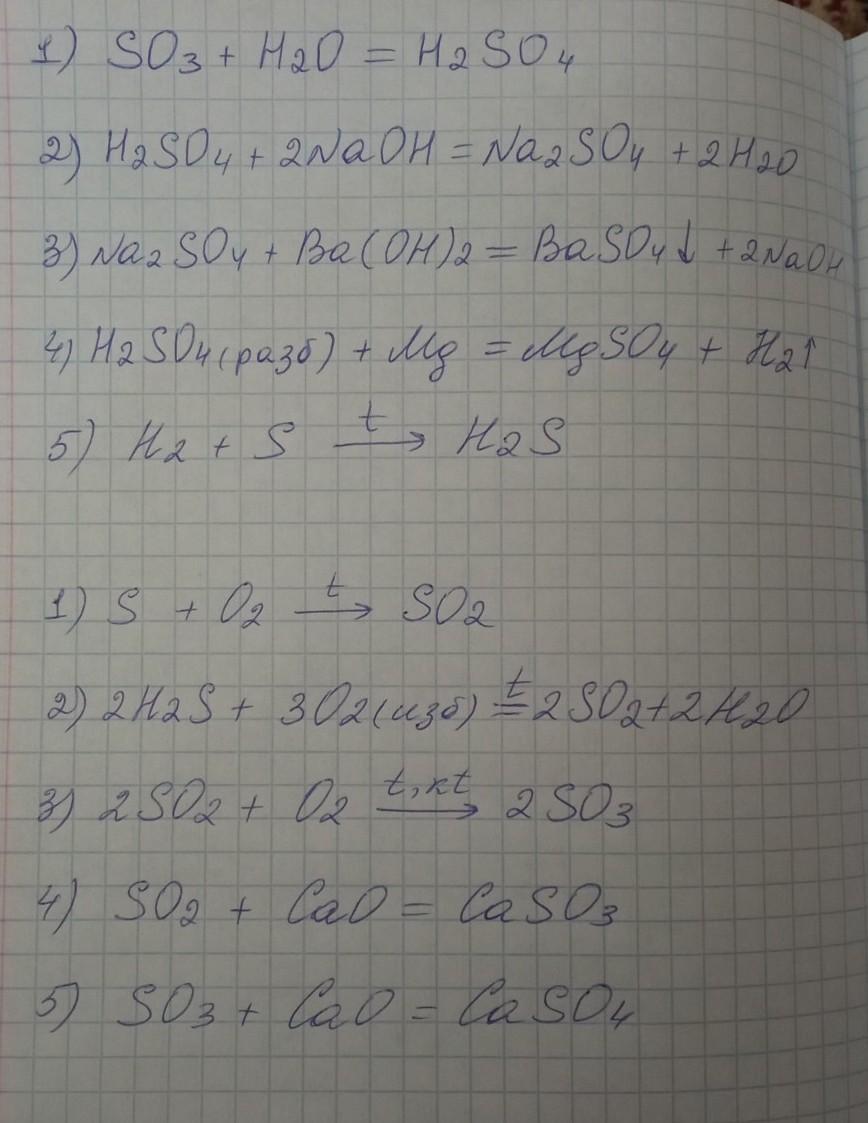 1) SO3 + H2O = H2SO4
2) H2SO4 + 2NaOH = Na2SO4 + 2H2O
3) Na2SO4 + Ba(OH)2 = BaSO4↓ + 2NaOH
4) H2SO4(разб) + Mg = MgSO4 + H2↑
5) H2 + S t→ H2S
1) S + O2 t→ SO2
2) 2H2S + 3O2(изб) t= 2SO2+2H2O
3) 2SO2 + O2 t,кt→ 2SO3
4) SO2 + CaO = CaSO3
5) SO3 + CaO = CaSO4